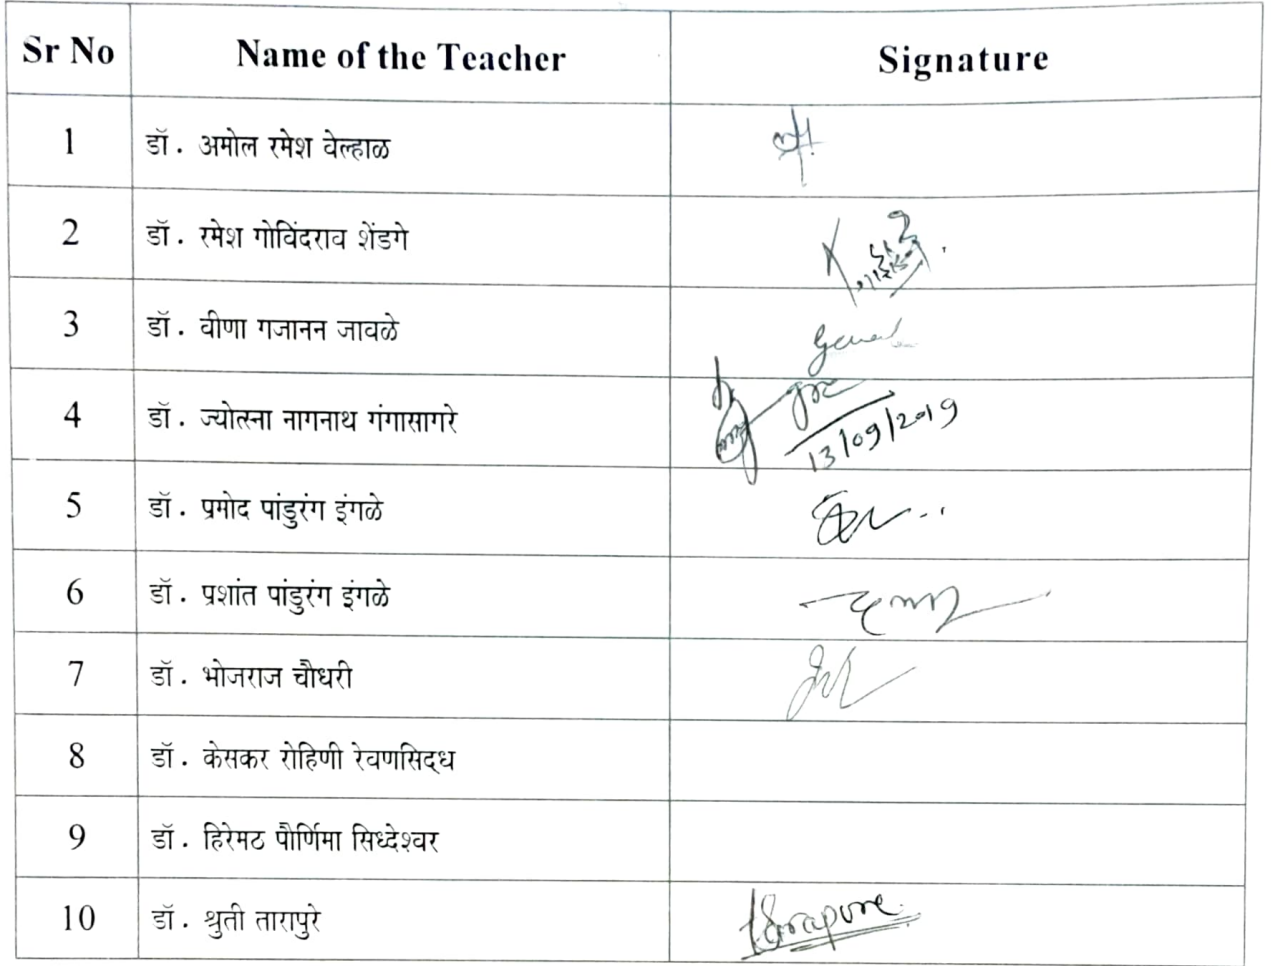 Sr No Name of the Teacher Signature
1 डॉ. अमोल रमेश वेल्हाळ
2 डॉ. रमेश गोविंदराव शेंडगे
3 डॉ. वीणा गजानन जावळे
4 डॉ. ज्योत्स्ना नागनाथ गंगासागरे 13/09/2019
5 डॉ. प्रमोद पांडुरंग इंगळे
6 डॉ. प्रशांत पांडुरंग इंगळे
7 डॉ. भोजराज चौधरी
8 डॉ. केसकर रोहिणी रेवणसिद्ध
9 डॉ. हिरेमठ पौर्णिमा सिध्देश्वर
10 डॉ. श्रुती तारापुरे